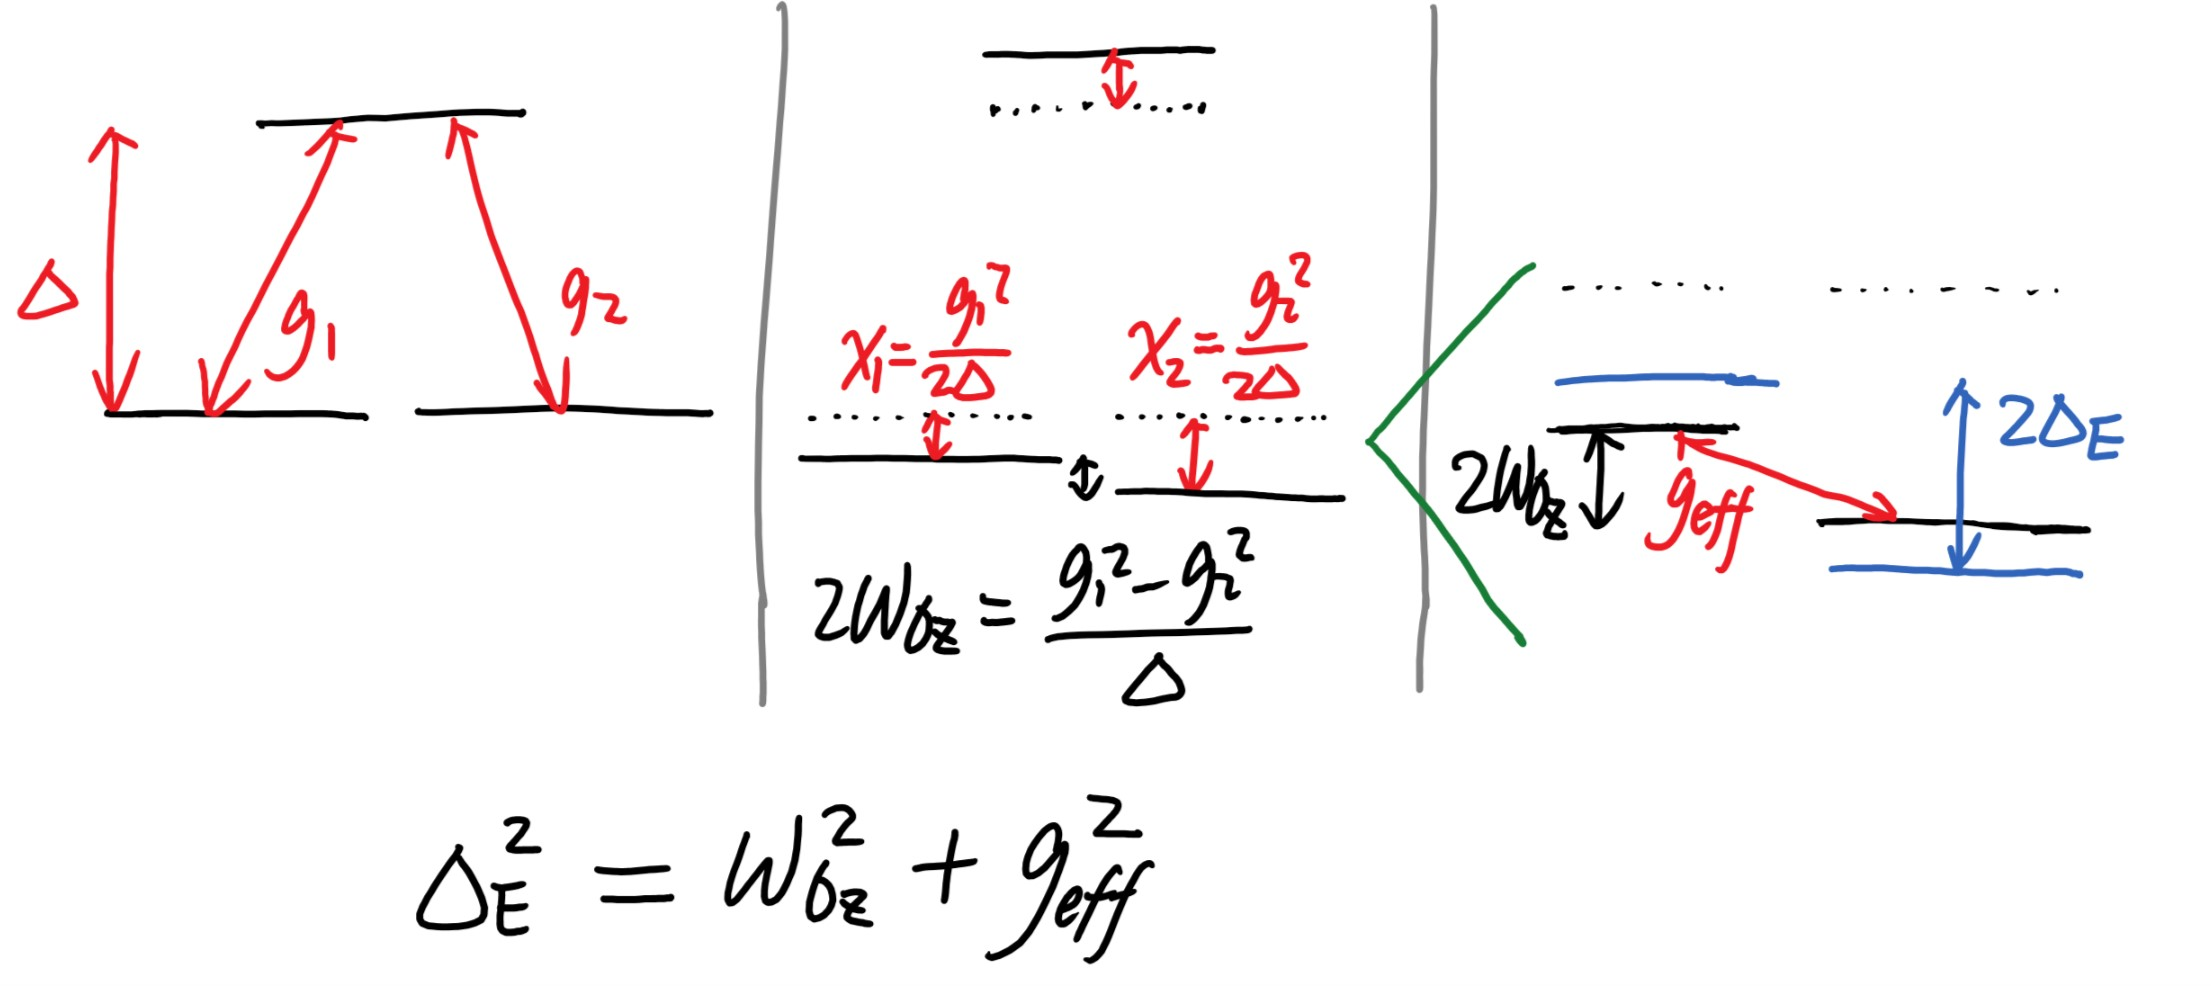 Δ
g₁
g₂
χ₁ = g₁² / 2Δ
χ₂ = g₂² / 2Δ
2W_σz = (g₁² - g₂²) / Δ
2W_σz
g_eff
2Δ_E
Δ_E² = W_σz² + g_eff²